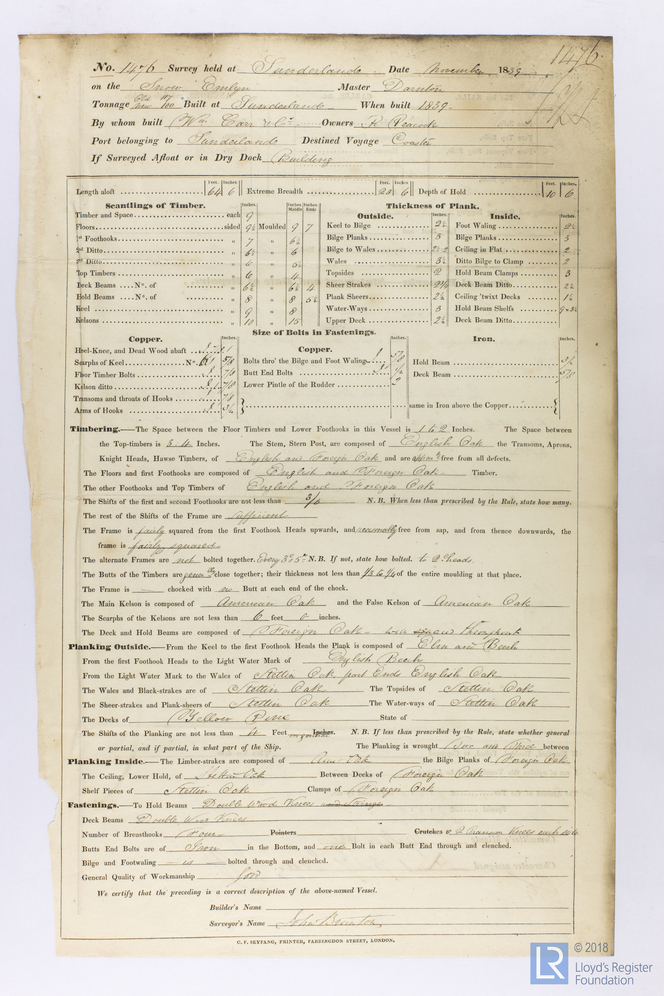 1476.
No. 1476 Survey held at Sunderland Date November 1839
on the Snow Emlyn Master
Tonnage Built at Sunderland When built 1839
By whom built Wm. Carr & Co. Owners R Peacock
Port belonging to Sunderland Destined Voyage Coaster
If Surveyed Afloat or in Dry Dock Building
Feet. Inches. Feet. Inches. Feet. Inches.
Length aloft 64 6 Extreme Breadth 20 6 Depth of Hold 10 6
Scantlings of Timber. Thickness of Plank.
Inches. Inches Middle Inches Ends Outside. Inches. Inside. Inches.
Timber and Space each 9
Floors sided 9½ Moulded 9 7 Keel to Bilge 2½ Foot Waling 2½
1st Foothooks " 7 " 6½ Bilge Planks 3 Bilge Planks 3
2nd Ditto " 6½ " 6 Bilge to Wales Ceiling in Flat 2
3rd Ditto " 6 " Wales 3½ Ditto Bilge to Clamp 2
Top Timbers " 6 " 4 Topsides 2 Hold Beam Clamps 3
Deck Beams No. of " 6½ " 6½ 4 Sheer Strakes Deck Beam Ditto 2½
Hold Beams No. of " 8 " 8 Plank Sheers 2½ Ceiling 'twixt Decks 1½
Keel " 9 " 8 Water-Ways 3 Hold Beam Shelfs
Kelsons " 10 " 15 Upper Deck 2½ Deck Beam Ditto
Size of Bolts in Fastenings.
Copper. Inches. Copper. Inches. Iron. Inches.
Heel-Knee, and Dead Wood abaft
Scarphs of Keel No. Bolts thro' the Bilge and Foot Waling Hold Beam 3/4
Floor Timber Bolts 7/8 Butt End Bolts Deck Beam 5/8
Kelson ditto 7/8 Lower Pintle of the Rudder 2
Transoms and throats of Hooks 7/8
Arms of Hooks 3/4 same in Iron above the Copper
Timbering.—The Space between the Floor Timbers and Lower Foothooks in this Vessel is 1 to 2 Inches. The Space between
the Top-timbers is 3.4 Inches. The Stem, Stern Post, are composed of English Oak the Transoms, Aprons,
Knight Heads, Hawse Timbers, of English and Foreign Oak and are free from all defects.
The Floors and first Foothooks are composed of English and Foreign Oak Timber.
The other Foothooks and Top Timbers of English and Foreign Oak
The Shifts of the first and second Foothooks are not less than 3/6 N.B. When less than prescribed by the Rule, state how many.
The rest of the Shifts of the Frame are sufficient
The Frame is fairly squared from the first Foothook Heads upwards, and reasonably free from sap, and from thence downwards, the
frame is fairly squared
The alternate Frames are not bolted together. N.B. If not, state how bolted. to 2d heads
The Butts of the Timbers are close together; their thickness not less than of the entire moulding at that place.
The Frame is — chocked with no Butt at each end of the chock.
The Main Kelson is composed of American Oak and the False Kelson of American Oak
The Scarphs of the Kelsons are not less than 6 feet 0 inches.
The Deck and Hold Beams are composed of Foreign Oak throughout
Planking Outside.—From the Keel to the first Foothook Heads the Plank is composed of Elm and Beech
From the first Foothook Heads to the Light Water Mark of English Beech
From the Light Water Mark to the Wales of Stettin Oak part Ends English Oak
The Wales and Black-strakes are of Stettin Oak The Topsides of Stettin Oak
The Sheer-strakes and Plank-sheers of Stettin Oak The Water-ways of Stettin Oak
The Decks of Yellow Pine State of
The Shifts of the Planking are not less than Feet Inches. N.B. If less than prescribed by the Rule, state whether general
or partial, and if partial, in what part of the Ship. The Planking is wrought between
Planking Inside.—The Limber-strakes are composed of Am. Oak the Bilge Planks of Foreign Oak
The Ceiling, Lower Hold, of Oak Between Decks of Foreign Oak
Shelf Pieces of Stettin Oak Clamps of Foreign Oak
Fastenings.—To Hold Beams Double Wood Knees
Deck Beams Double Wood Knees
Number of Breasthooks Four Pointers Crutches Knees each side
Butts End Bolts are of Iron in the Bottom, and one Bolt in each Butt End through and clenched.
Bilge and Footwaling — is — bolted through and clenched.
General Quality of Workmanship Good
We certify that the preceding is a correct description of the above-named Vessel.
Builder's Name
Surveyor's Name John Brunton
C. F. SEYFANG, PRINTER, FARRINGDON STREET, LONDON.
LR © 2018
Lloyd's Register
Foundation